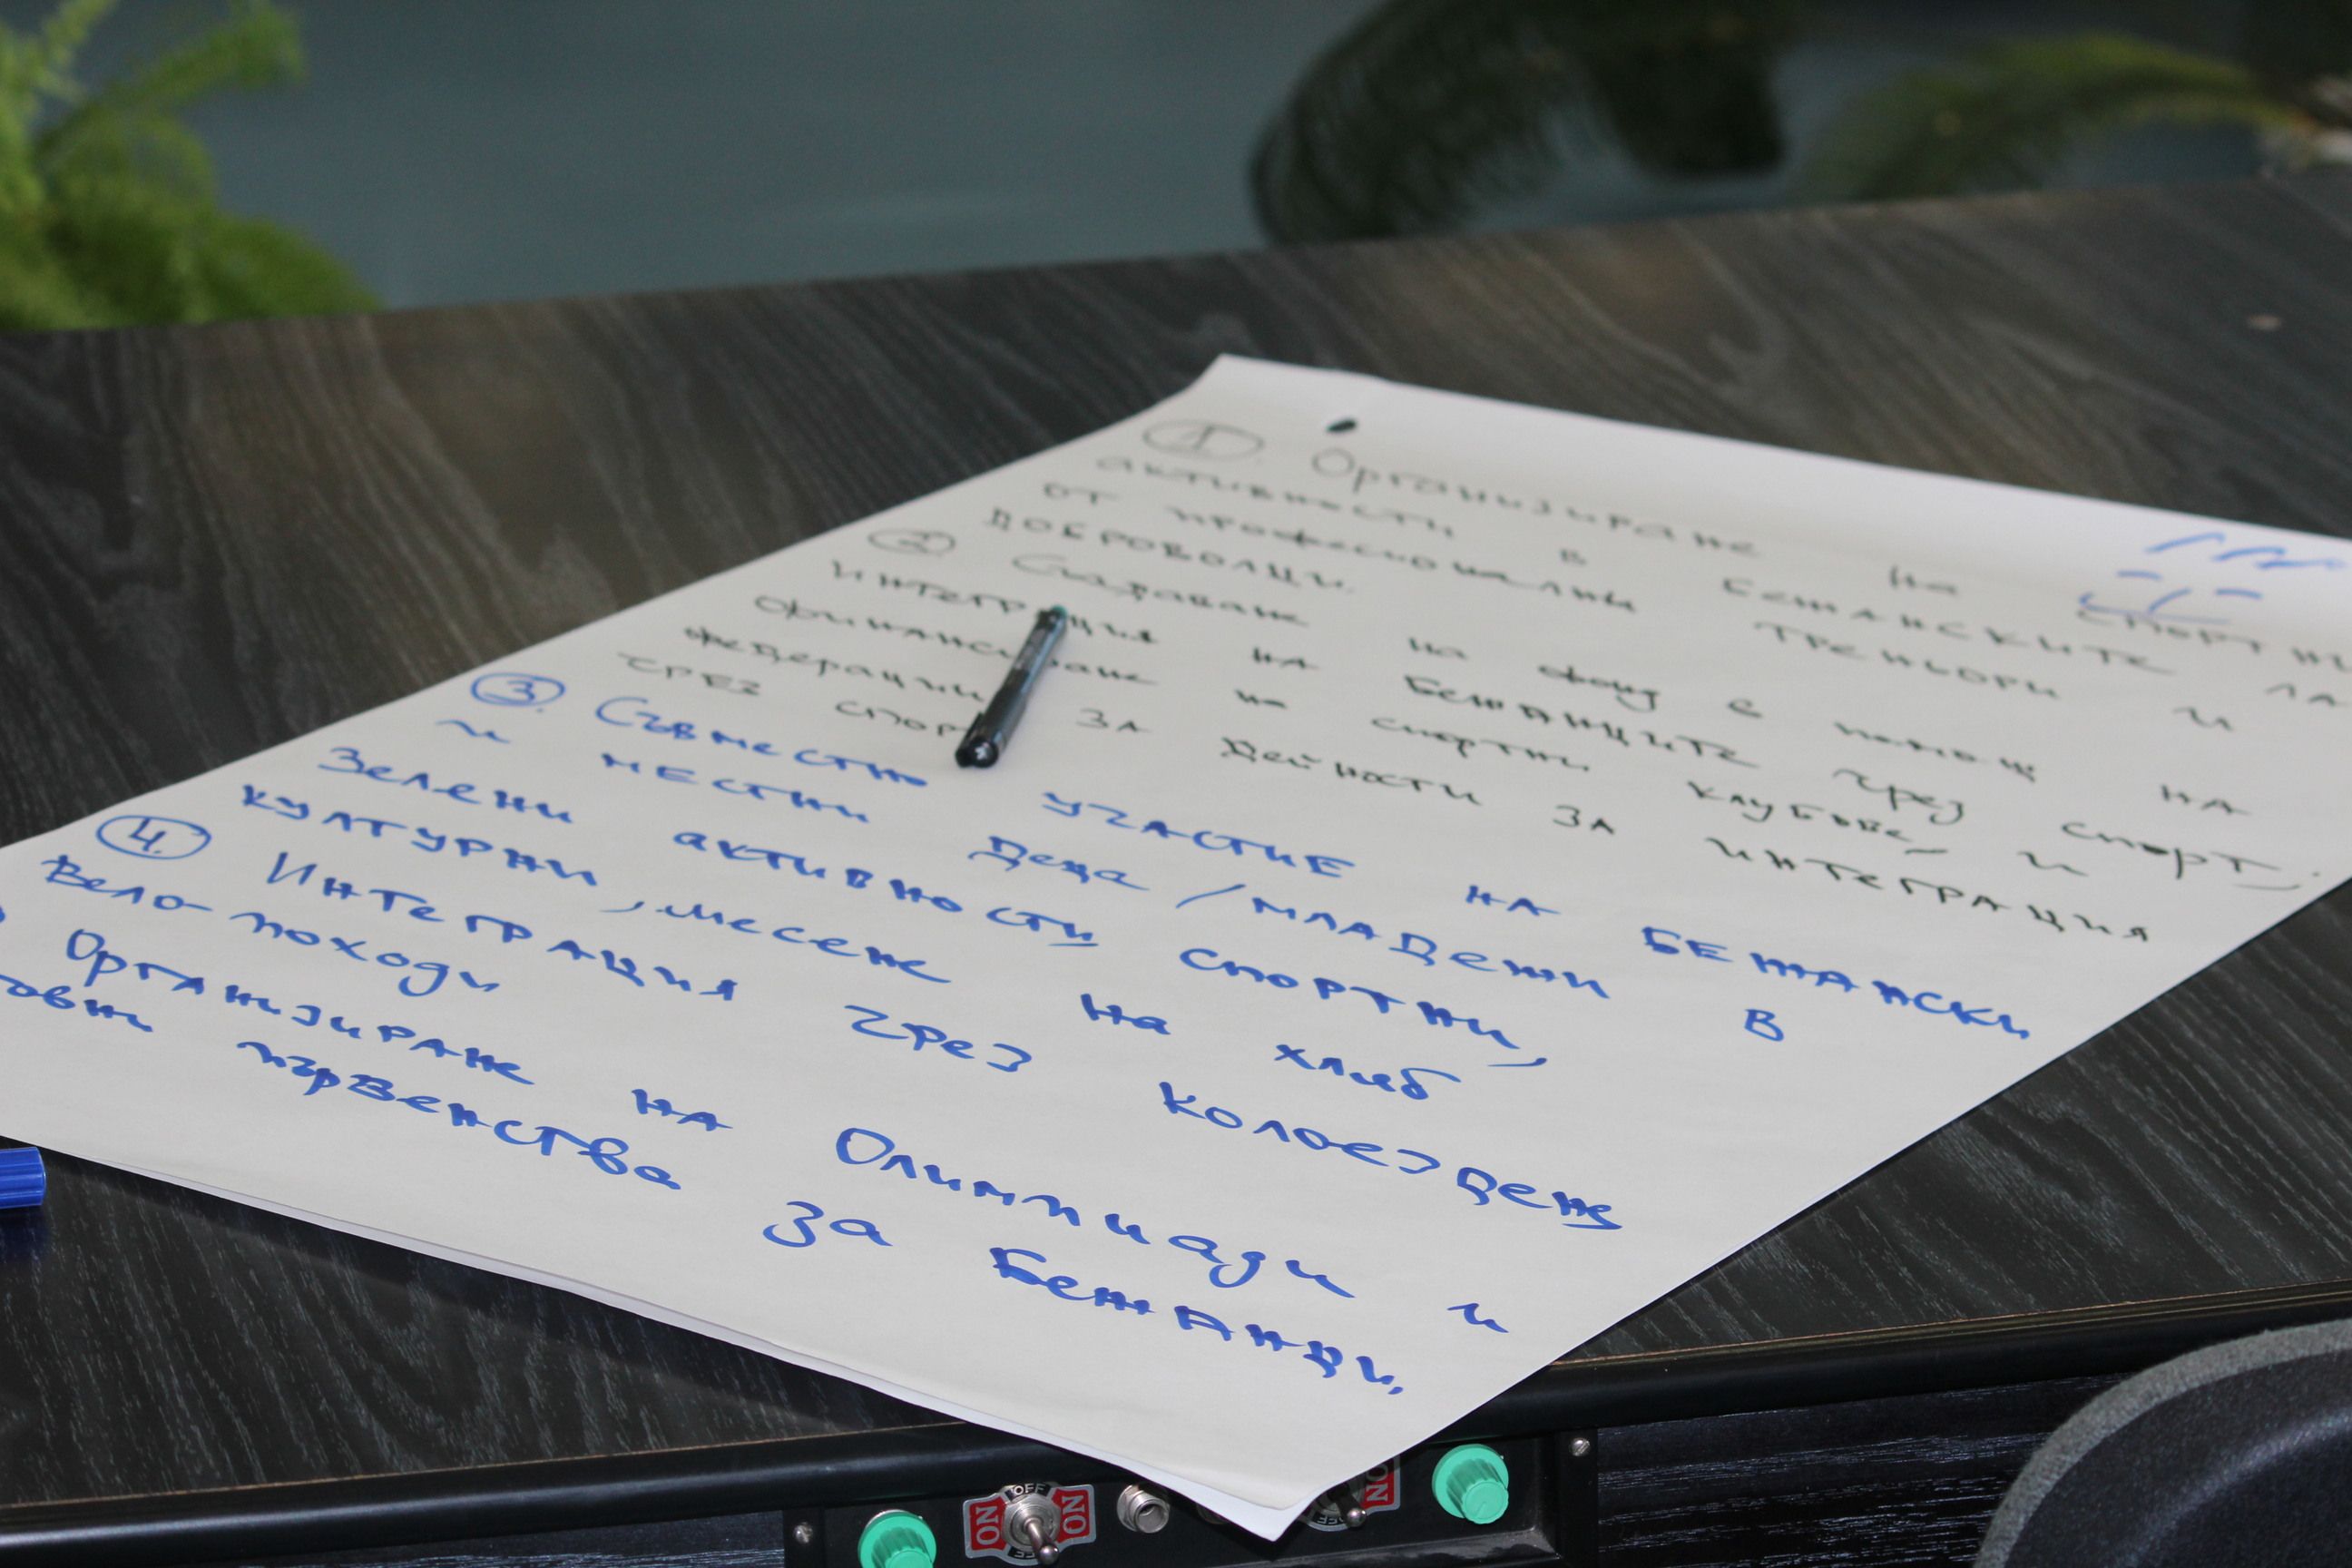 1. Организиране на спортни
активности в бежанските ла
от професионални треньори и
доброволци.
2 Създаване на фонд с помощ на
интеграция на бежанците чрез спорт.
финансиране на спортни клубове и
федерации за дейности за интеграция
чрез спорт
3. Съвместно участие на бежански
и местни деца / младежи в
Зелени активности спортни,
културни, месене на хляб
4. Интеграция чрез колоездене
Вело-походи
Организиране на Олимпиади и
първенства за бежанци,
ON OFF ON
ON